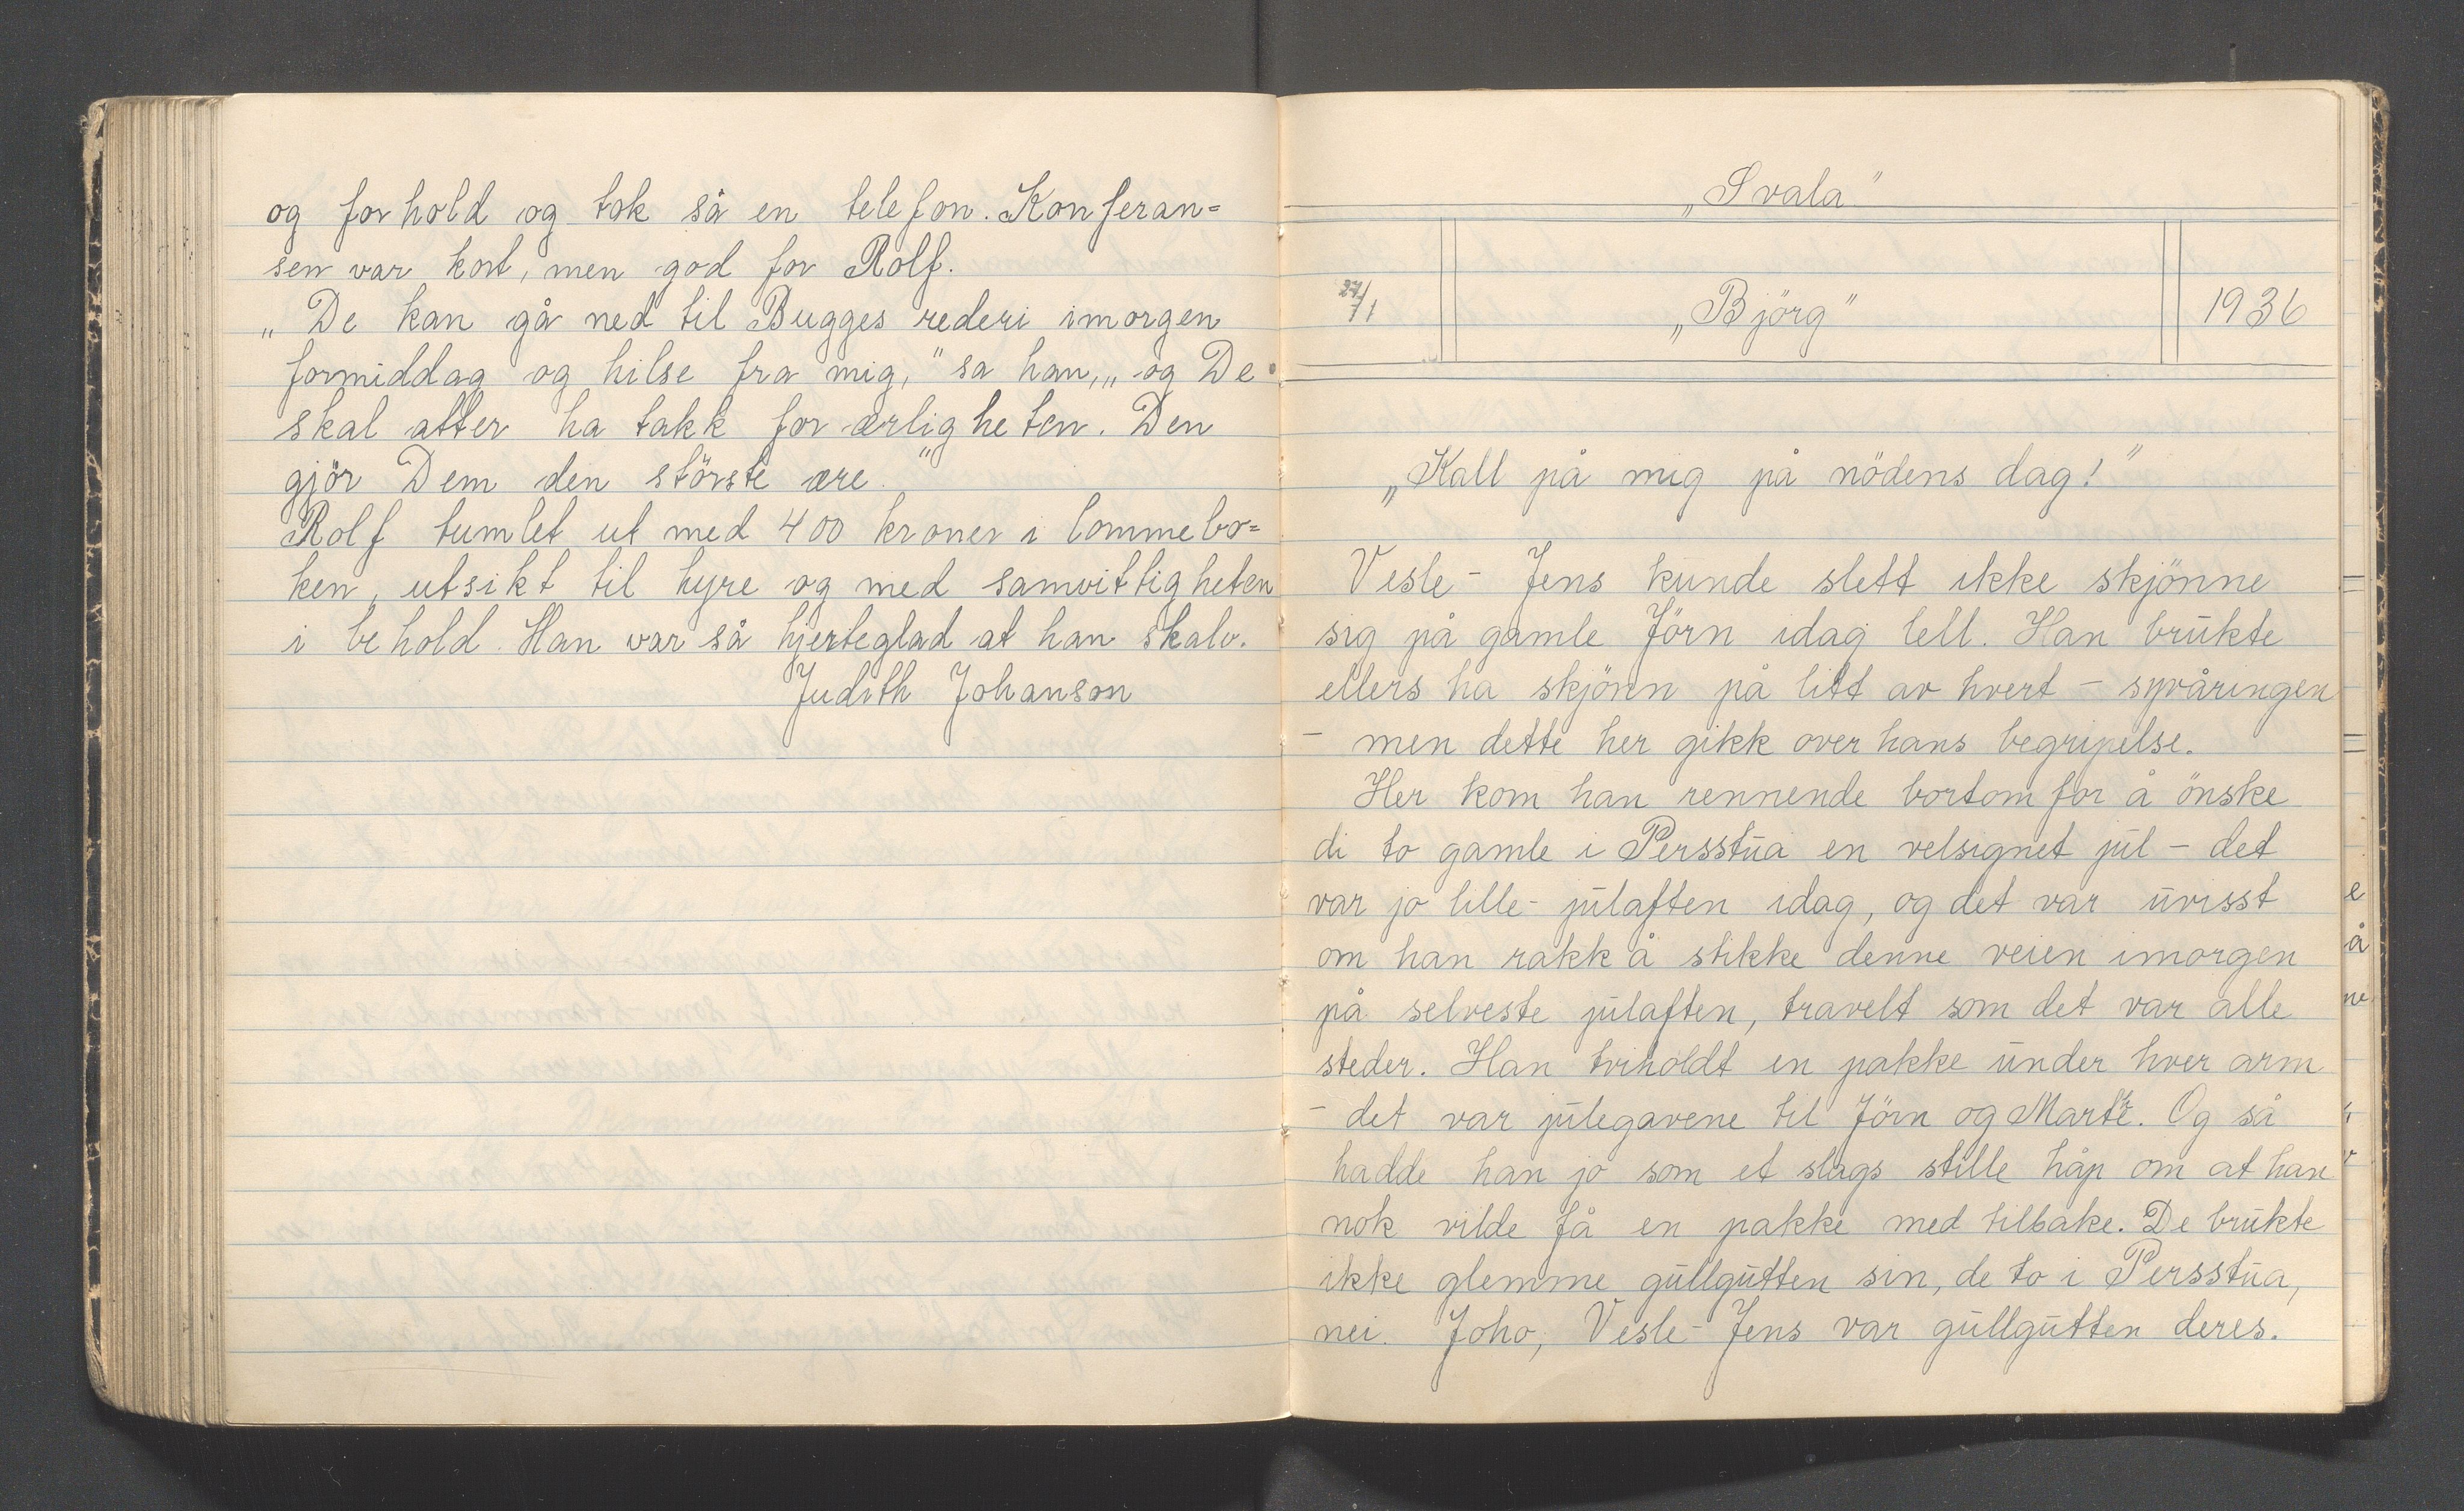 og forhold og tok så en telefon. Konferan=
sen var kort, men god for Rolf.
„De kan gå ned til Bugges rederi imorgen
formiddag og hilse fra mig," sa han, „og De
skal atter ha takk for ærligheten. Den
gjör Dem den störste ære."
Rolf tumlet ut med 400 kroner i lommebo=
ken, utsikt til hyre og med samvittigheten
i behold. Han var så hjerteglad at han skalv.
Judith Johanson
„Svala"
27/1 „Björg" 1936
„Kall på mig på nödens dag!"
Vesle-Jens kunde slett ikke skjönne
sig på gamle Jörn idag lell. Han brukte
ellers ha skjönn på litt av hvert - syvåringen
- men dette her gikk over hans begripelse.
Her kom han rennende bortom for å önske
di to gamle i Persstua en velsignet jul - det
var jo lille-julaften idag, og det var uvisst
om han rakk å stikke denne veien imorgen
på selveste julaften, travelt som det var alle
steder. Han tviholdt en pakke under hver arm
- det var julegavene til Jörn og Marte. Og så
hadde han jo som et slags stille håp om at han
nok vilde få en pakke med tilbake. De brukte
ikke glemme gullgutten sin, de to i Persstua,
nei. Joho, Vesle-Jens var gullgutten deres.
e
å
ne